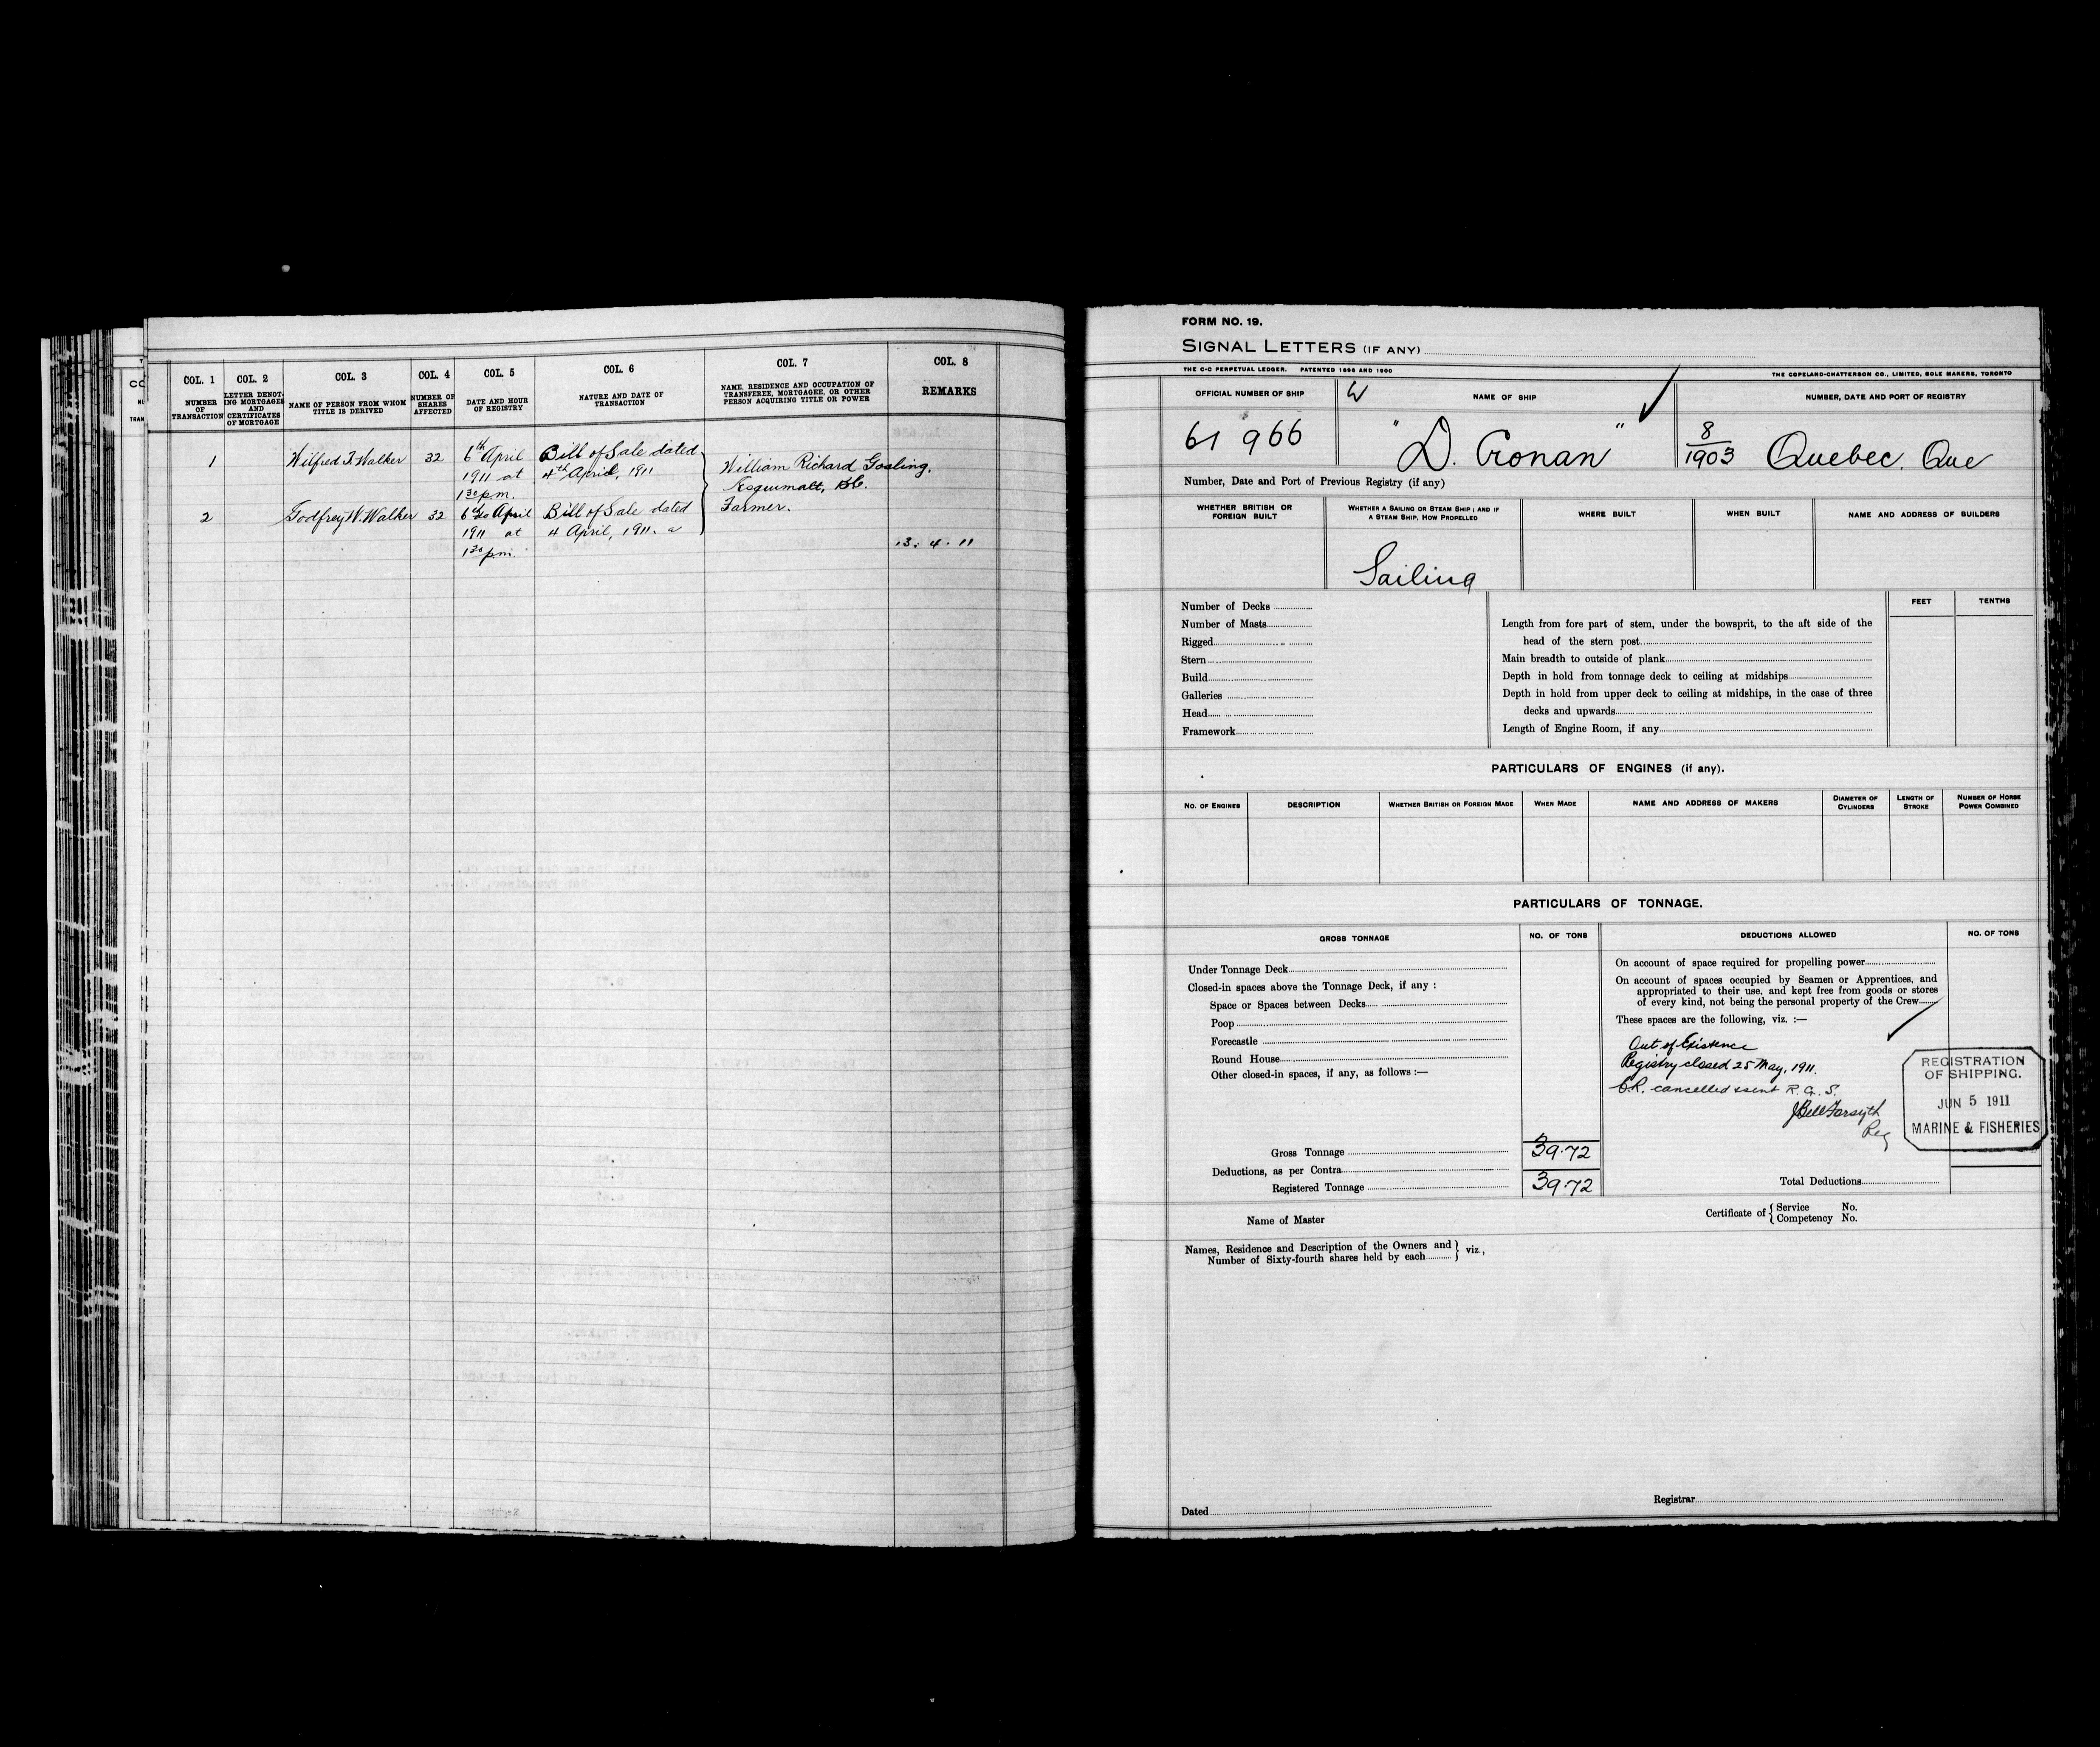 COL. 1
NUMBER
OF
TRANSACTION
COL. 2
LETTER DENOT-
ING MORTGAGES
AND
CERTIFICATES
OF MORTGAGE
COL. 3
NAME OF PERSON FROM WHOM
TITLE IS DERIVED
COL. 4
NUMBER OF
SHARES
AFFECTED
COL. 5
DATE AND HOUR
OF REGISTRY
COL. 6
NATURE AND DATE OF
TRANSACTION
COL. 7
NAME, RESIDENCE AND OCCUPATION OF
TRANSFEREE, MORTGAGEE, OR OTHER
PERSON ACQUIRING TITLE OR POWER
COL. 8
REMARKS
1
Wilfred T. Walker
32
6th April
1911 at
1 30 p.m.
Bill of Sale dated
4th April, 1911
William Richard Gosling,
Esquimalt, B.C.
Farmer.
2
Godfrey W. Walker
32
April
1911 at
1 30 p.m.
Bill of Sale dated
4 April, 1911.
13. 4. 11
FORM NO. 19.
SIGNAL LETTERS (IF ANY)
THE C-C PERPETUAL LEDGER. PATENTED 1896 AND 1900
THE COPELAND-CHATTERSON CO., LIMITED, SOLE MAKERS, TORONTO
OFFICIAL NUMBER OF SHIP
NAME OF SHIP
NUMBER, DATE AND PORT OF REGISTRY
61 966
"D. Cronan"
8
1903
Quebec. Que
Number, Date and Port of Previous Registry (if any)
WHETHER BRITISH OR
FOREIGN BUILT
WHETHER A SAILING OR STEAM SHIP; AND IF
A STEAM SHIP, HOW PROPELLED
WHERE BUILT
WHEN BUILT
NAME AND ADDRESS OF BUILDERS
Sailing
Number of Decks
Number of Masts
Rigged
Stern
Build
Galleries
Head
Framework
FEET
TENTHS
Length from fore part of stem, under the bowsprit, to the aft side of the
head of the stern post
Main breadth to outside of plank
Depth in hold from tonnage deck to ceiling at midships
Depth in hold from upper deck to ceiling at midships, in the case of three
decks and upwards
Length of Engine Room, if any
PARTICULARS OF ENGINES (if any).
NO. OF ENGINES
DESCRIPTION
WHETHER BRITISH OR FOREIGN MADE
WHEN MADE
NAME AND ADDRESS OF MAKERS
DIAMETER OF
CYLINDERS
LENGTH OF
STROKE
NUMBER OF HORSE
POWER COMBINED
PARTICULARS OF TONNAGE.
GROSS TONNAGE
NO. OF TONS
DEDUCTIONS ALLOWED
NO. OF TONS
Under Tonnage Deck
Closed-in spaces above the Tonnage Deck, if any :
Space or Spaces between Decks
Poop
Forecastle
Round House
Other closed-in spaces, if any, as follows :—
Gross Tonnage 39.72
Deductions, as per Contra
Registered Tonnage 39.72
On account of space required for propelling power
On account of spaces occupied by Seamen or Apprentices, and
appropriated to their use, and kept free from goods or stores
of every kind, not being the personal property of the Crew
These spaces are the following, viz. :—
Out of Existence
Registry closed 25 May, 1911.
C.R. cancelled & sent R. G. S.
J Bell Forsyth
Reg
REGISTRATION
OF SHIPPING.
JUN 5 1911
MARINE & FISHERIES
Total Deductions
Name of Master
Certificate of { Service No.
Competency No.
Names, Residence and Description of the Owners and } viz.,
Number of Sixty-fourth shares held by each
Dated
Registrar